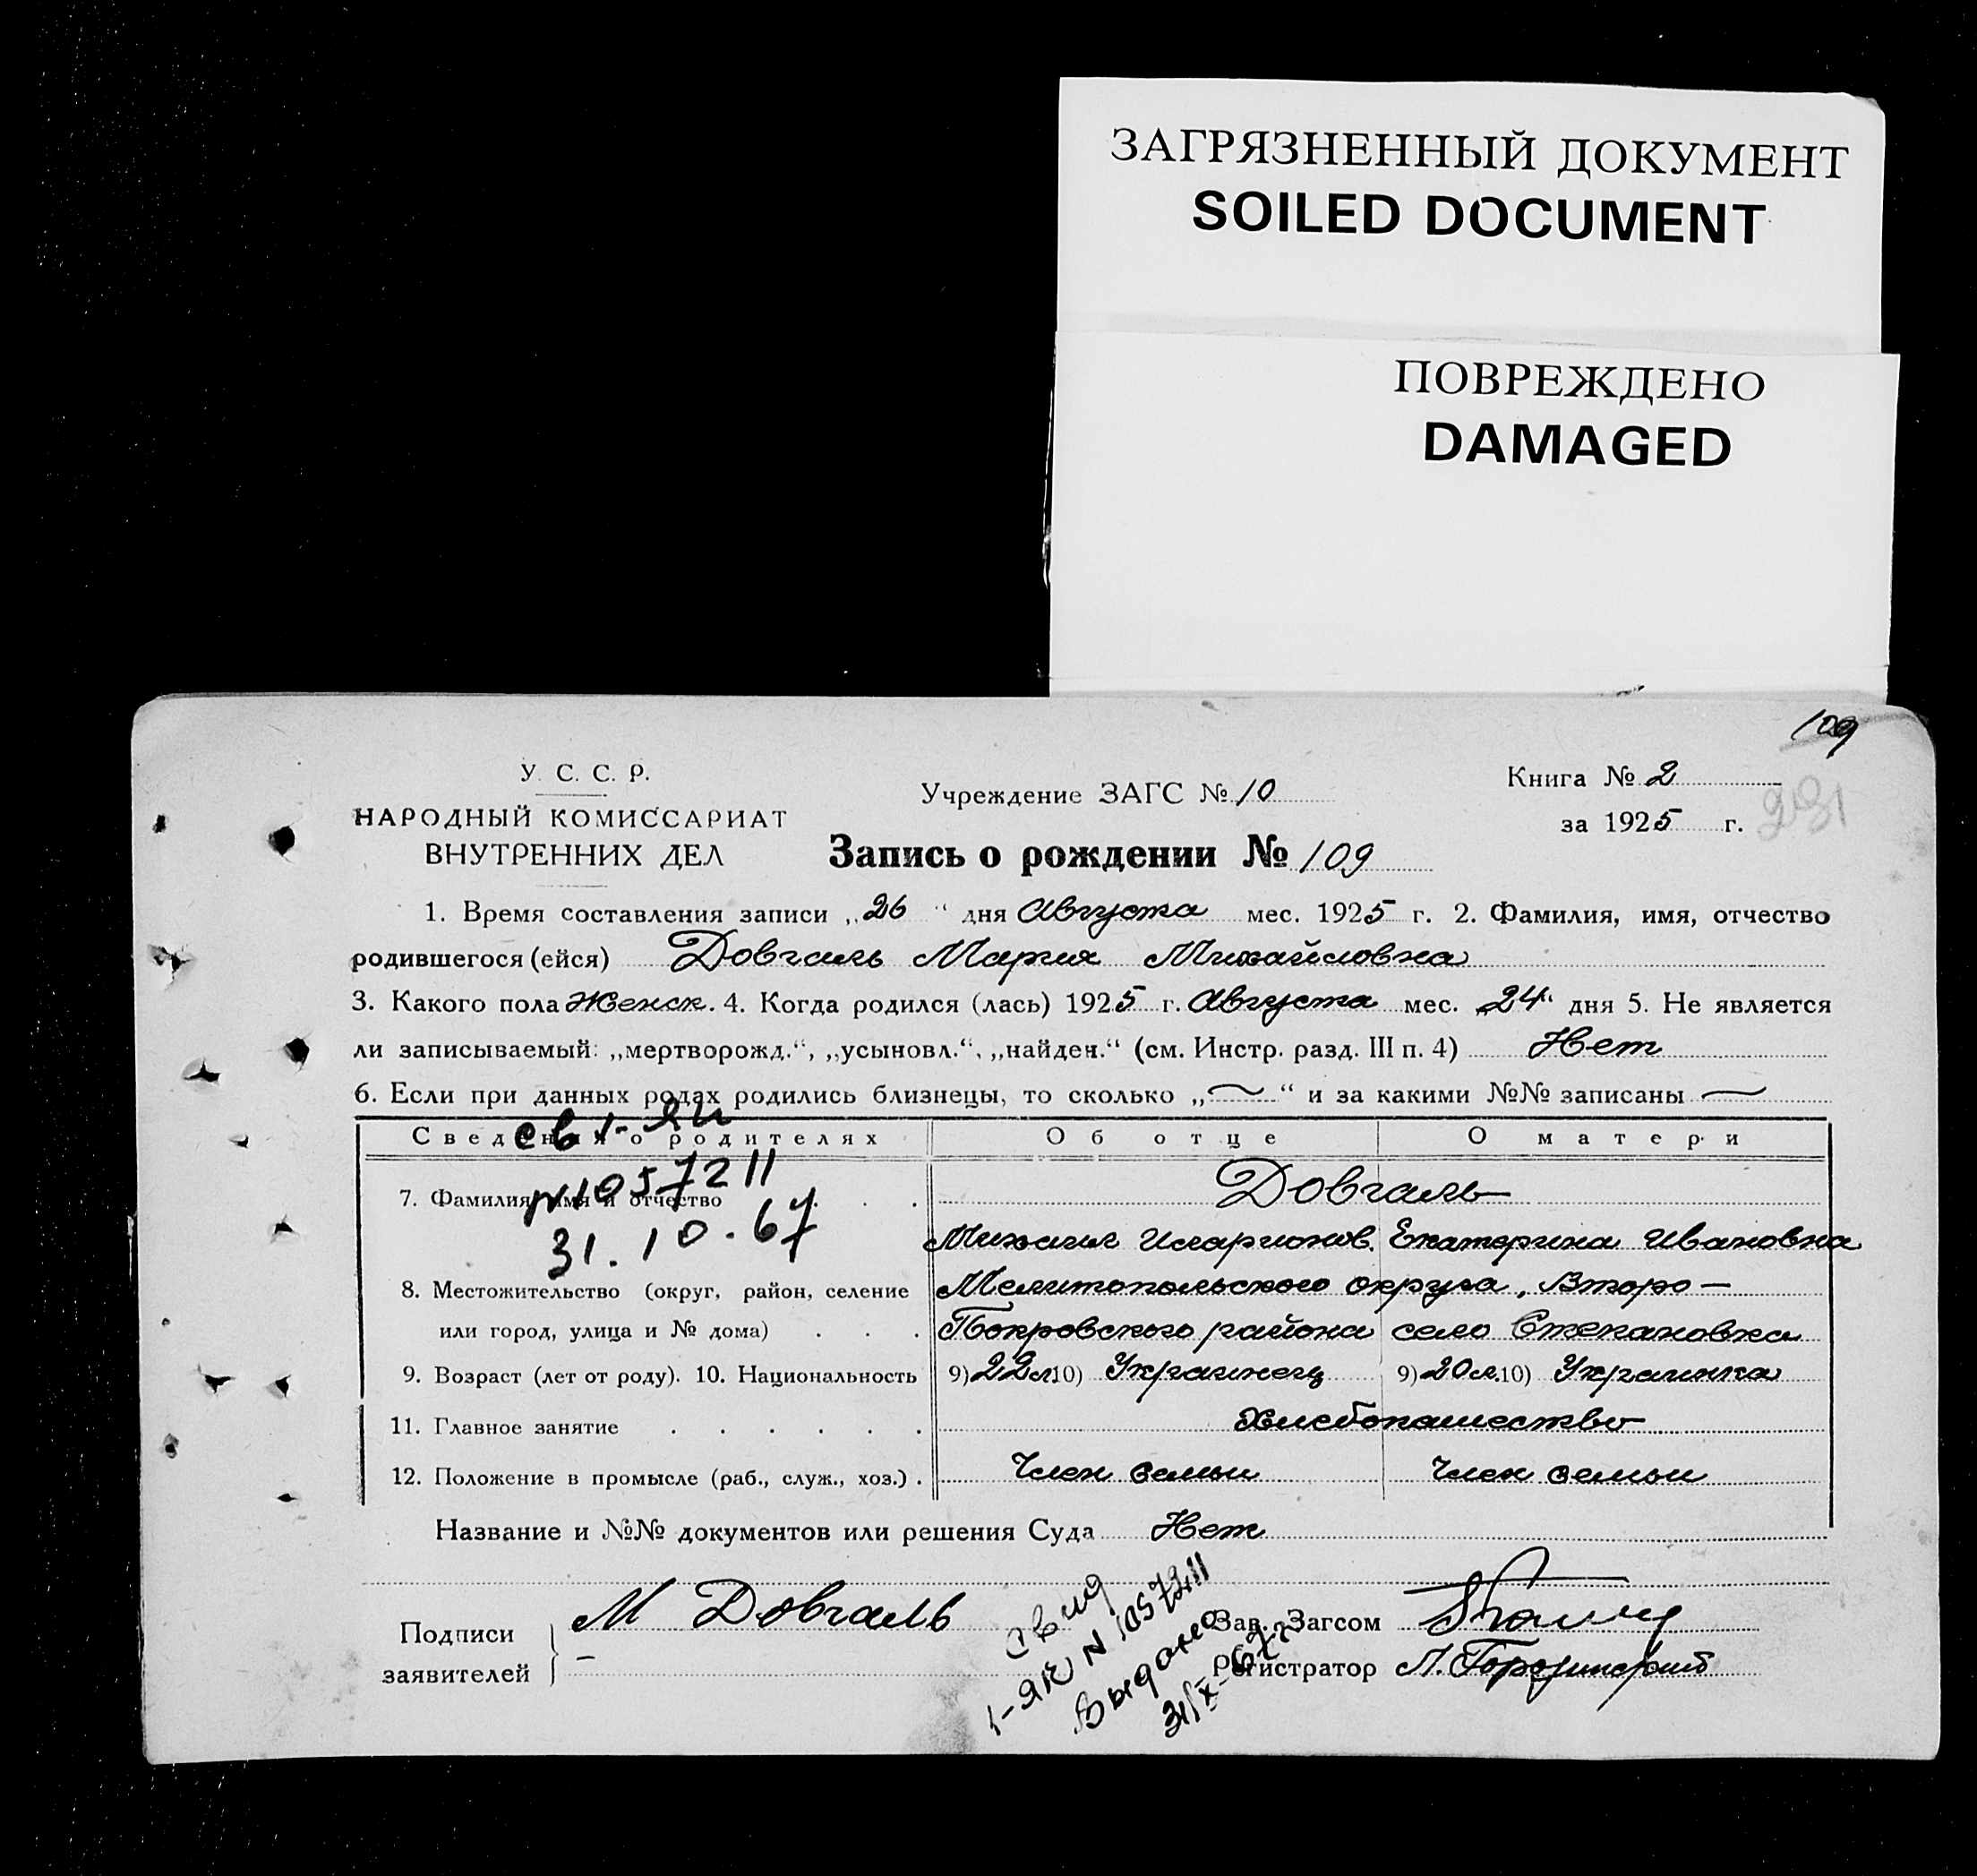 ЗАГРЯЗНЕННЫЙ ДОКУМЕНТ
SOILED DOCUMENT
ПОВРЕЖДЕНО
DAMAGED
109
У. С. С. Р.
НАРОДНЫЙ КОМИССАРИАТ
ВНУТРЕННИХ ДЕЛ
Учреждение ЗАГС № 10
Книга № 2
за 1925 г.
231
Запись о рождении № 109
1. Время составления записи „26“ дня Августа мес. 1925 г. 2. Фамилия, имя, отчество
родившегося (ейся) Довгаль Мария Михайловна
3. Какого пола Женск. 4. Когда родился (лась) 1925 г. Августа мес. „24“ дня 5. Не является
ли записываемый: „мертворожд.“, „усыновл.“, „найден.“ (см. Инстр. разд. III п. 4) Нет
6. Если при данных родах родились близнецы, то сколько „—“ и за какими №№ записаны —
Сведения о родителях Об отце О матери
св I-ЯИ
N 1057211
31.10.67
7. Фамилия, имя и отчество . . . Довгаль
Михаил Иларионов. Екатерина Ивановна
8. Местожительство (округ, район, селение Мелитопольского округа, Второ-
или город, улица и № дома) . . . Покровского района село Степановка
9. Возраст (лет от роду). 10. Национальность 9) 22 л. 10) Украинец 9) 20 л. 10) Украинка
11. Главное занятие . . . . . . Хлебопашество
12. Положение в промысле (раб., служ., хоз.) . Член семьи Член семьи
Название и №№ документов или решения Суда Нет
Подписи
заявителей
М Довгаль
–
свид
N 1057211
Выдано
31/X-67г
Зав. Загсом
Регистратор Л.